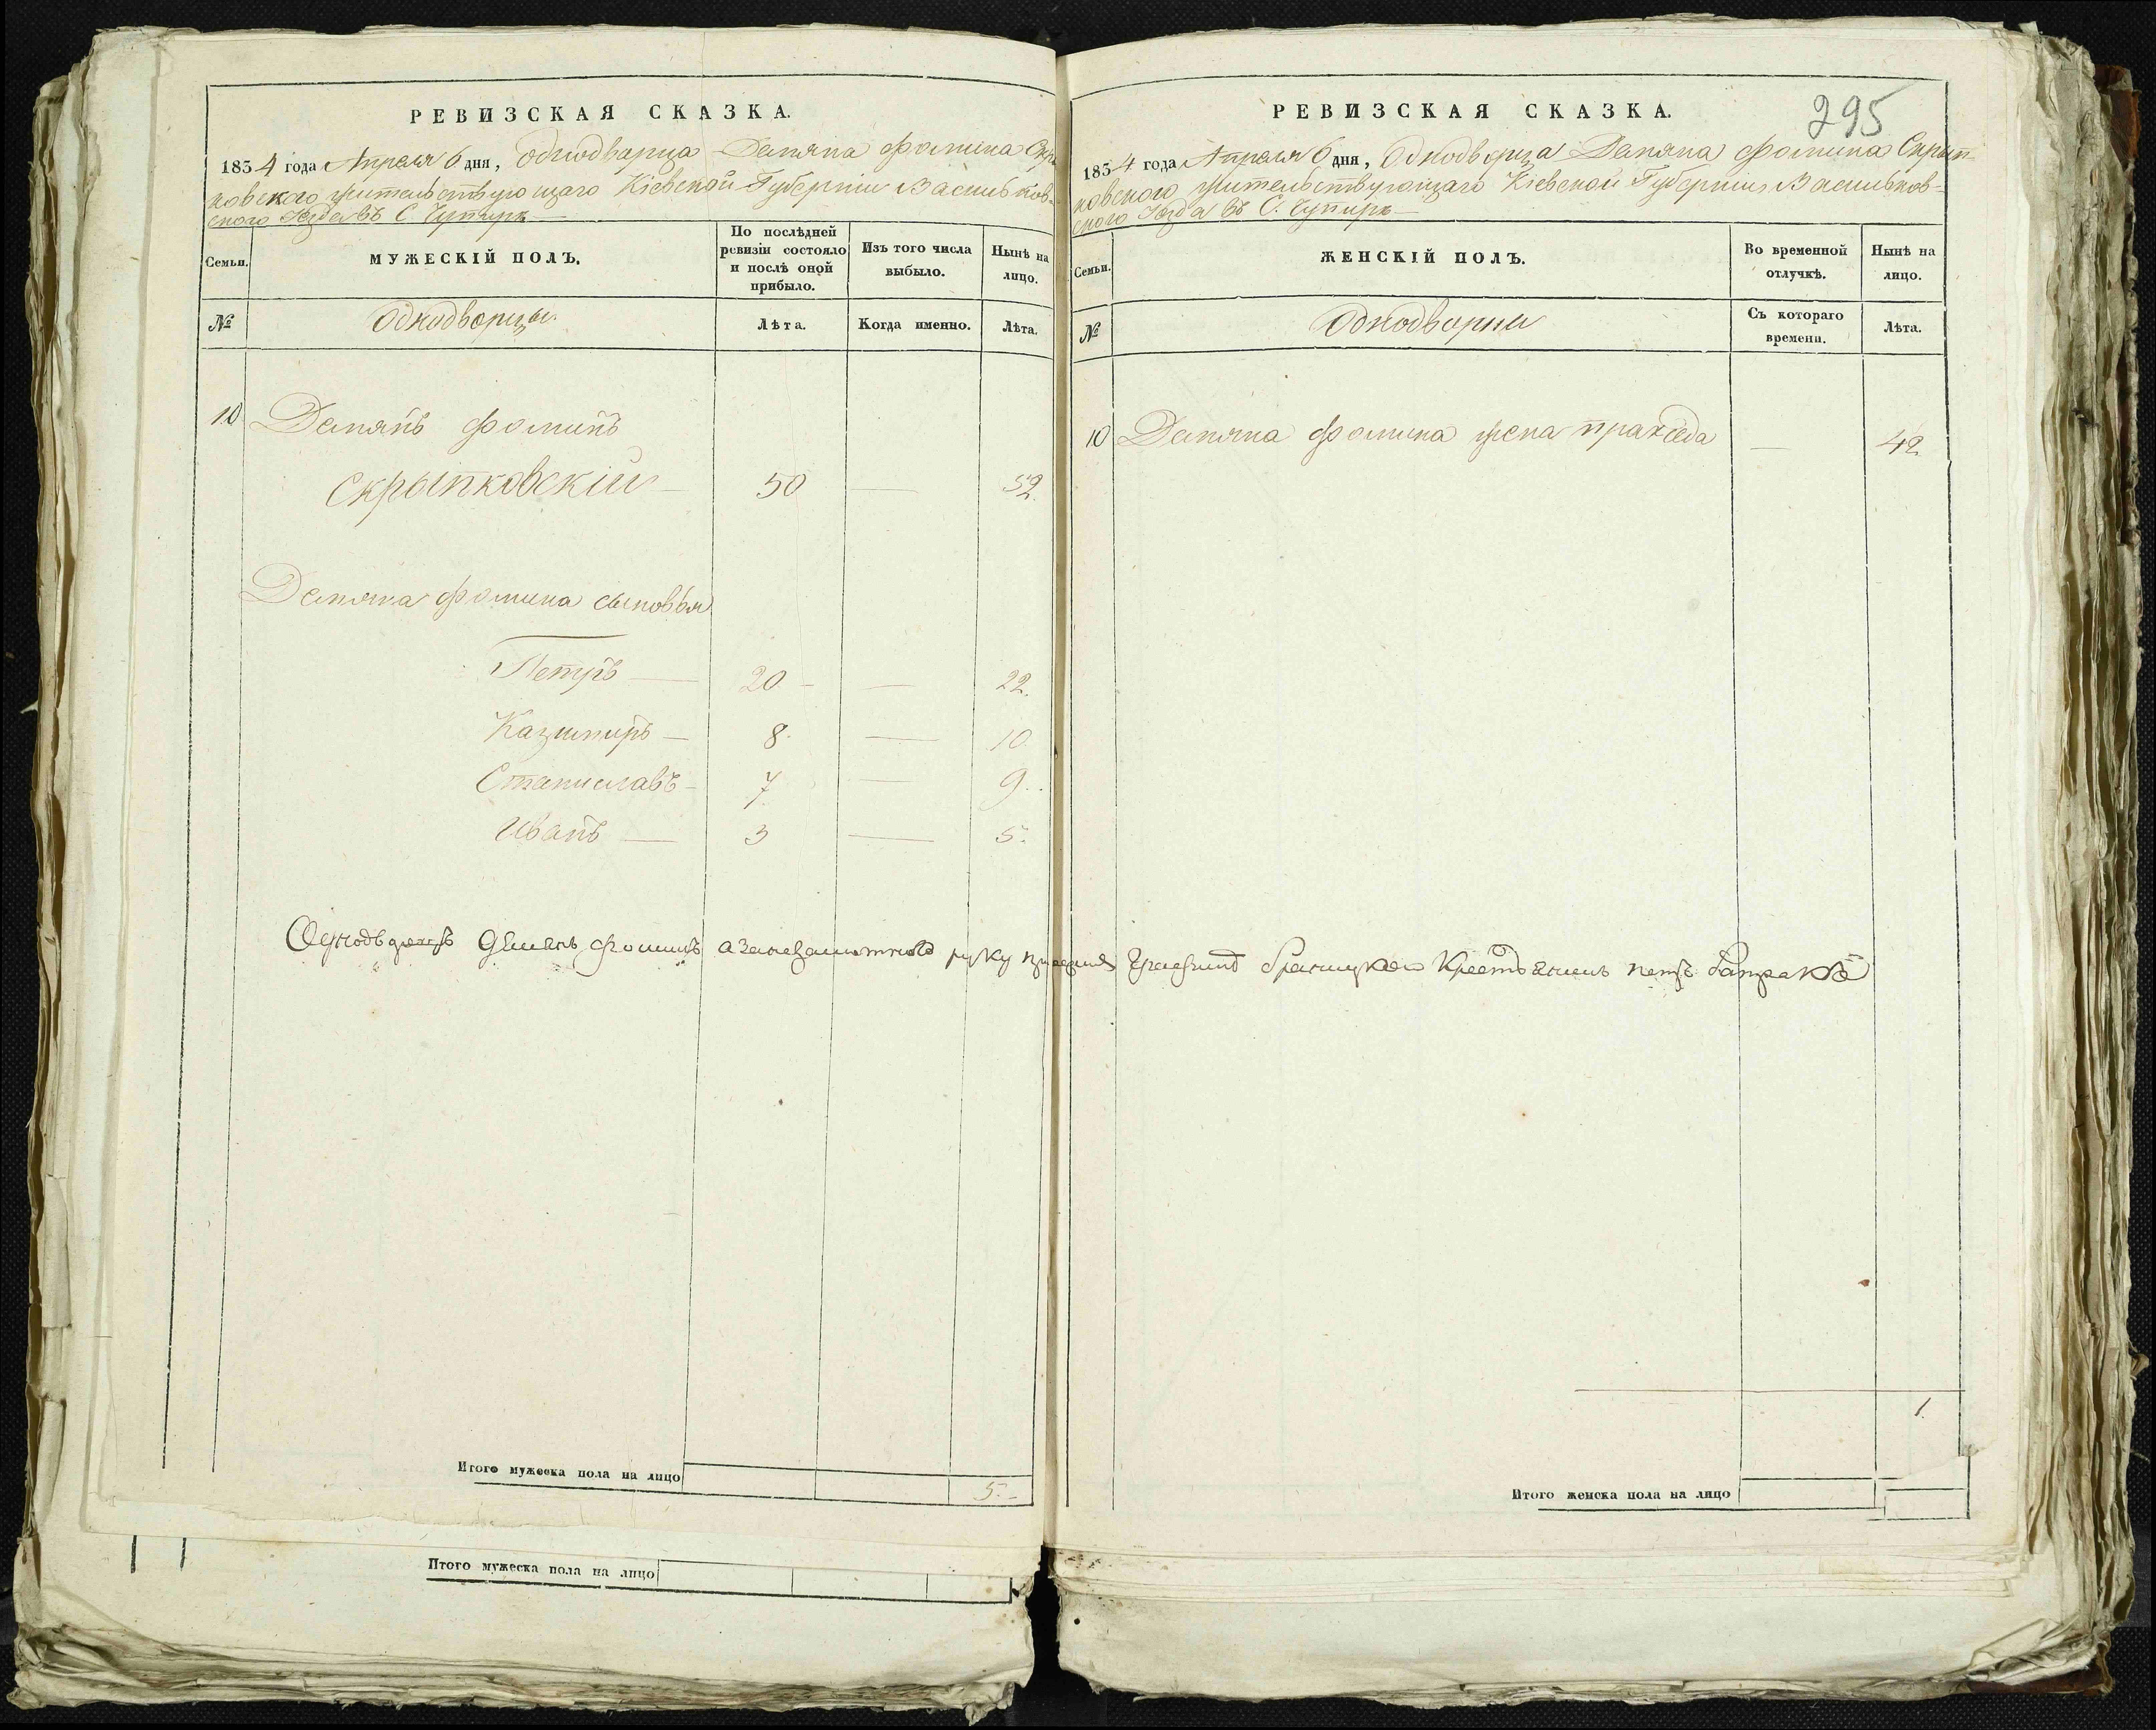 РЕВИЗСКАЯ СКАЗКА.
1834 года Апреля 6 дня, Однодворца Демяна Фомина Скрып
ковского жительствующаго Кіевской Губерніи Васильков-
ского Уезда въ С. Чупире
Семьи.
МУЖЕСКІЙ ПОЛЪ.
По послѣдней ревизіи состояло и послѣ оной прибыло.
Изъ того числа выбыло.
Нынѣ на лицо.
№
Однодворцы.
Лѣта.
Когда именно.
Лѣта.
10 Демянъ Фоминъ
Скрыпковскій — 50 — 52.
Демяна Фомина сыновья
Петръ — 20 — — 22.
Казимиръ — 8. — 10
Станиславъ — 7. — 9.
Иванъ — 3 — 5.
Итого мужеска пола на лицо 5.-
Итого мужеска пола на лицо
295
РЕВИЗСКАЯ СКАЗКА.
1834 года Апреля 6 дня, Однодворца Демяна Фомина Скрып-
ковского жительствующаго Кіевской Губерніи Васильков-
ского Уезда въ С. Чупире —
Семьи.
ЖЕНСКІЙ ПОЛЪ.
Во временной отлучкѣ.
Нынѣ на лицо.
№
Однодворки
Съ котораго времени.
Лѣта.
10 Демяна Фомина жена Праксѣда — 42
Однодворецъ Демянъ Фоминъ а занеграмотного руку Крестянинъ
1.
Итого женска пола на лицо